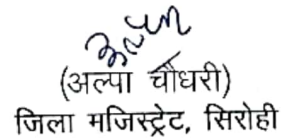 अल्पा
(अल्पा चौधरी)
जिला मजिस्ट्रेट, सिरोही